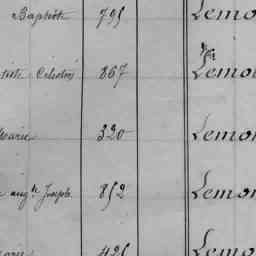 Baptiste 795 Lemo
Célestin 867 Lemo
Marie 320 Lemon
aug.te Joseph 852 Lemon
425 Lemo